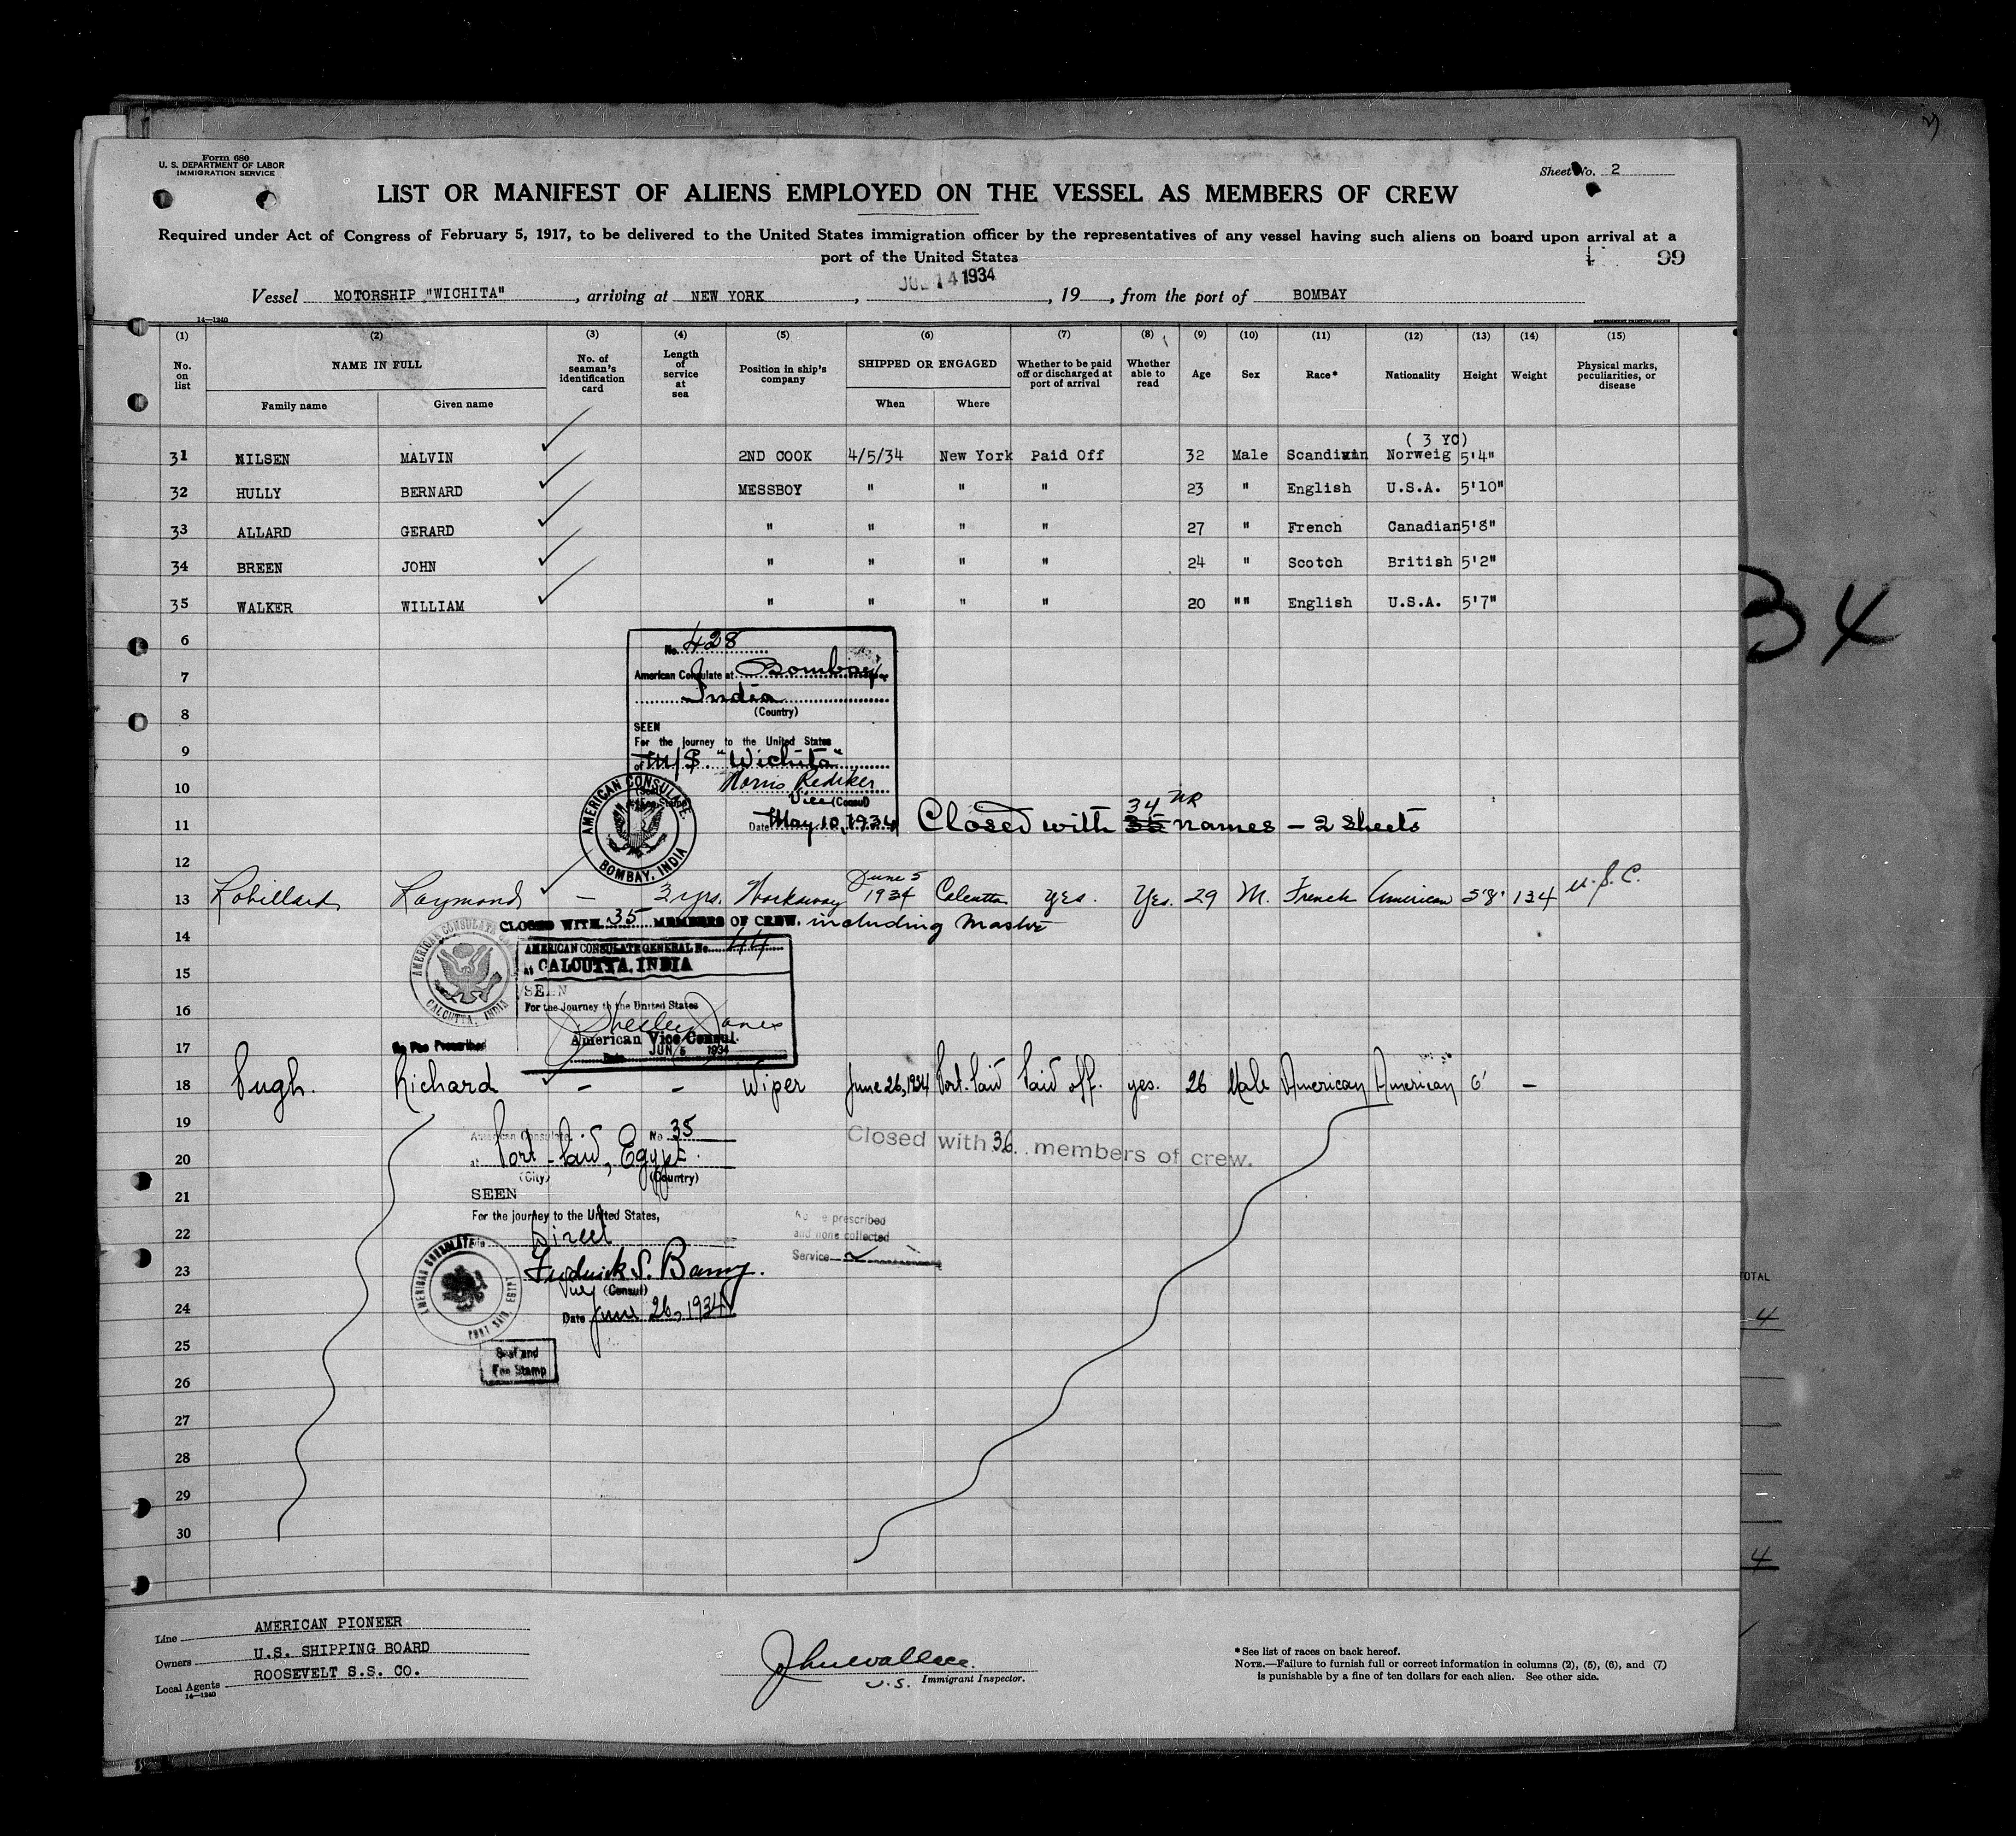 Form 680
U. S. DEPARTMENT OF LABOR
IMMIGRATION SERVICE
Sheet No. 2
LIST OR MANIFEST OF ALIENS EMPLOYED ON THE VESSEL AS MEMBERS OF CREW
Required under Act of Congress of February 5, 1917, to be delivered to the United States immigration officer by the representatives of any vessel having such aliens on board upon arrival at a
port of the United States
99
Vessel MOTORSHIP "WICHITA", arriving at NEW YORK, JUL 14 1934, 19, from the port of BOMBAY
14—1240
GOVERNMENT PRINTING OFFICE
(1) (2) (3) (4) (5) (6) (7) (8) (9) (10) (11) (12) (13) (14) (15)
No. on list NAME IN FULL Family name Given name No. of seaman's identification card Length of service at sea Position in ship's company SHIPPED OR ENGAGED When Where Whether to be paid off or discharged at port of arrival Whether able to read Age Sex Race* Nationality Height Weight Physical marks, peculiarities, or disease
( 3 YO)
31 NILSEN MALVIN 2ND COOK 4/5/34 New York Paid Off 32 Male Norweig 5'4"
32 HULLY BERNARD MESSBOY " " " 23 " English U.S.A. 5'10"
33 ALLARD GERARD " " " " 27 " French Canadian 5'8"
34 BREEN JOHN " " " " 24 " Scotch British 5'2"
35 WALKER WILLIAM " " " " 20 "" English U.S.A. 5'7"
6
No. 428
7
American Consulate at Bombay
India
8
(Country)
SEEN
9
For the journey to the United States
of M/S. "Wichita"
10
Morris Rediker
Vice (Consul)
AMERICAN CONSULATE BOMBAY, INDIA
34
11
Date May 10, 1934
Closed with 35 names — 2 sheets
12
13 Robillard Raymond — 3 yrs. Workaway June 5 1934 Calcutta yes. Yes. 29 M. French American 5'8" 134 U.S.C.
CLOSED WITH 35 MEMBERS OF CREW. including Master
14
AMERICAN CONSULATE GENERAL No. 44
at CALCUTTA, INDIA
15
SEEN
AMERICAN CONSULATE CALCUTTA, INDIA
16
For the Journey to the United States
J. Shesley Jones
American Vice Consul.
17
No Fee Prescribed
Date JUN 5 1934
18 Pugh. Richard — — Wiper June 26, 1934 Port. Said Paid off. yes. 26 Male American American 6' —
19
American Consulate No 35
Closed with 36 members of crew.
20
at Port-Said, Egypt.
(City) (Country)
21
SEEN
For the journey to the United States,
22
Direct
prescribed
and none collected
Service
23
Frederick S. Barny.
(Consul)
24
Date June 26, 1934
AMERICAN CONSULATE PORT SAID, EGYPT
25
Seal and
Fee Stamp
26
27
28
29
30
34
TOTAL
4
4
Line AMERICAN PIONEER
Owners U.S. SHIPPING BOARD
Local Agents ROOSEVELT S.S. CO.
14—1240
Jhnwallace.
U.S. Immigrant Inspector.
*See list of races on back hereof.
NOTE.—Failure to furnish full or correct information in columns (2), (5), (6), and (7)
is punishable by a fine of ten dollars for each alien. See other side.